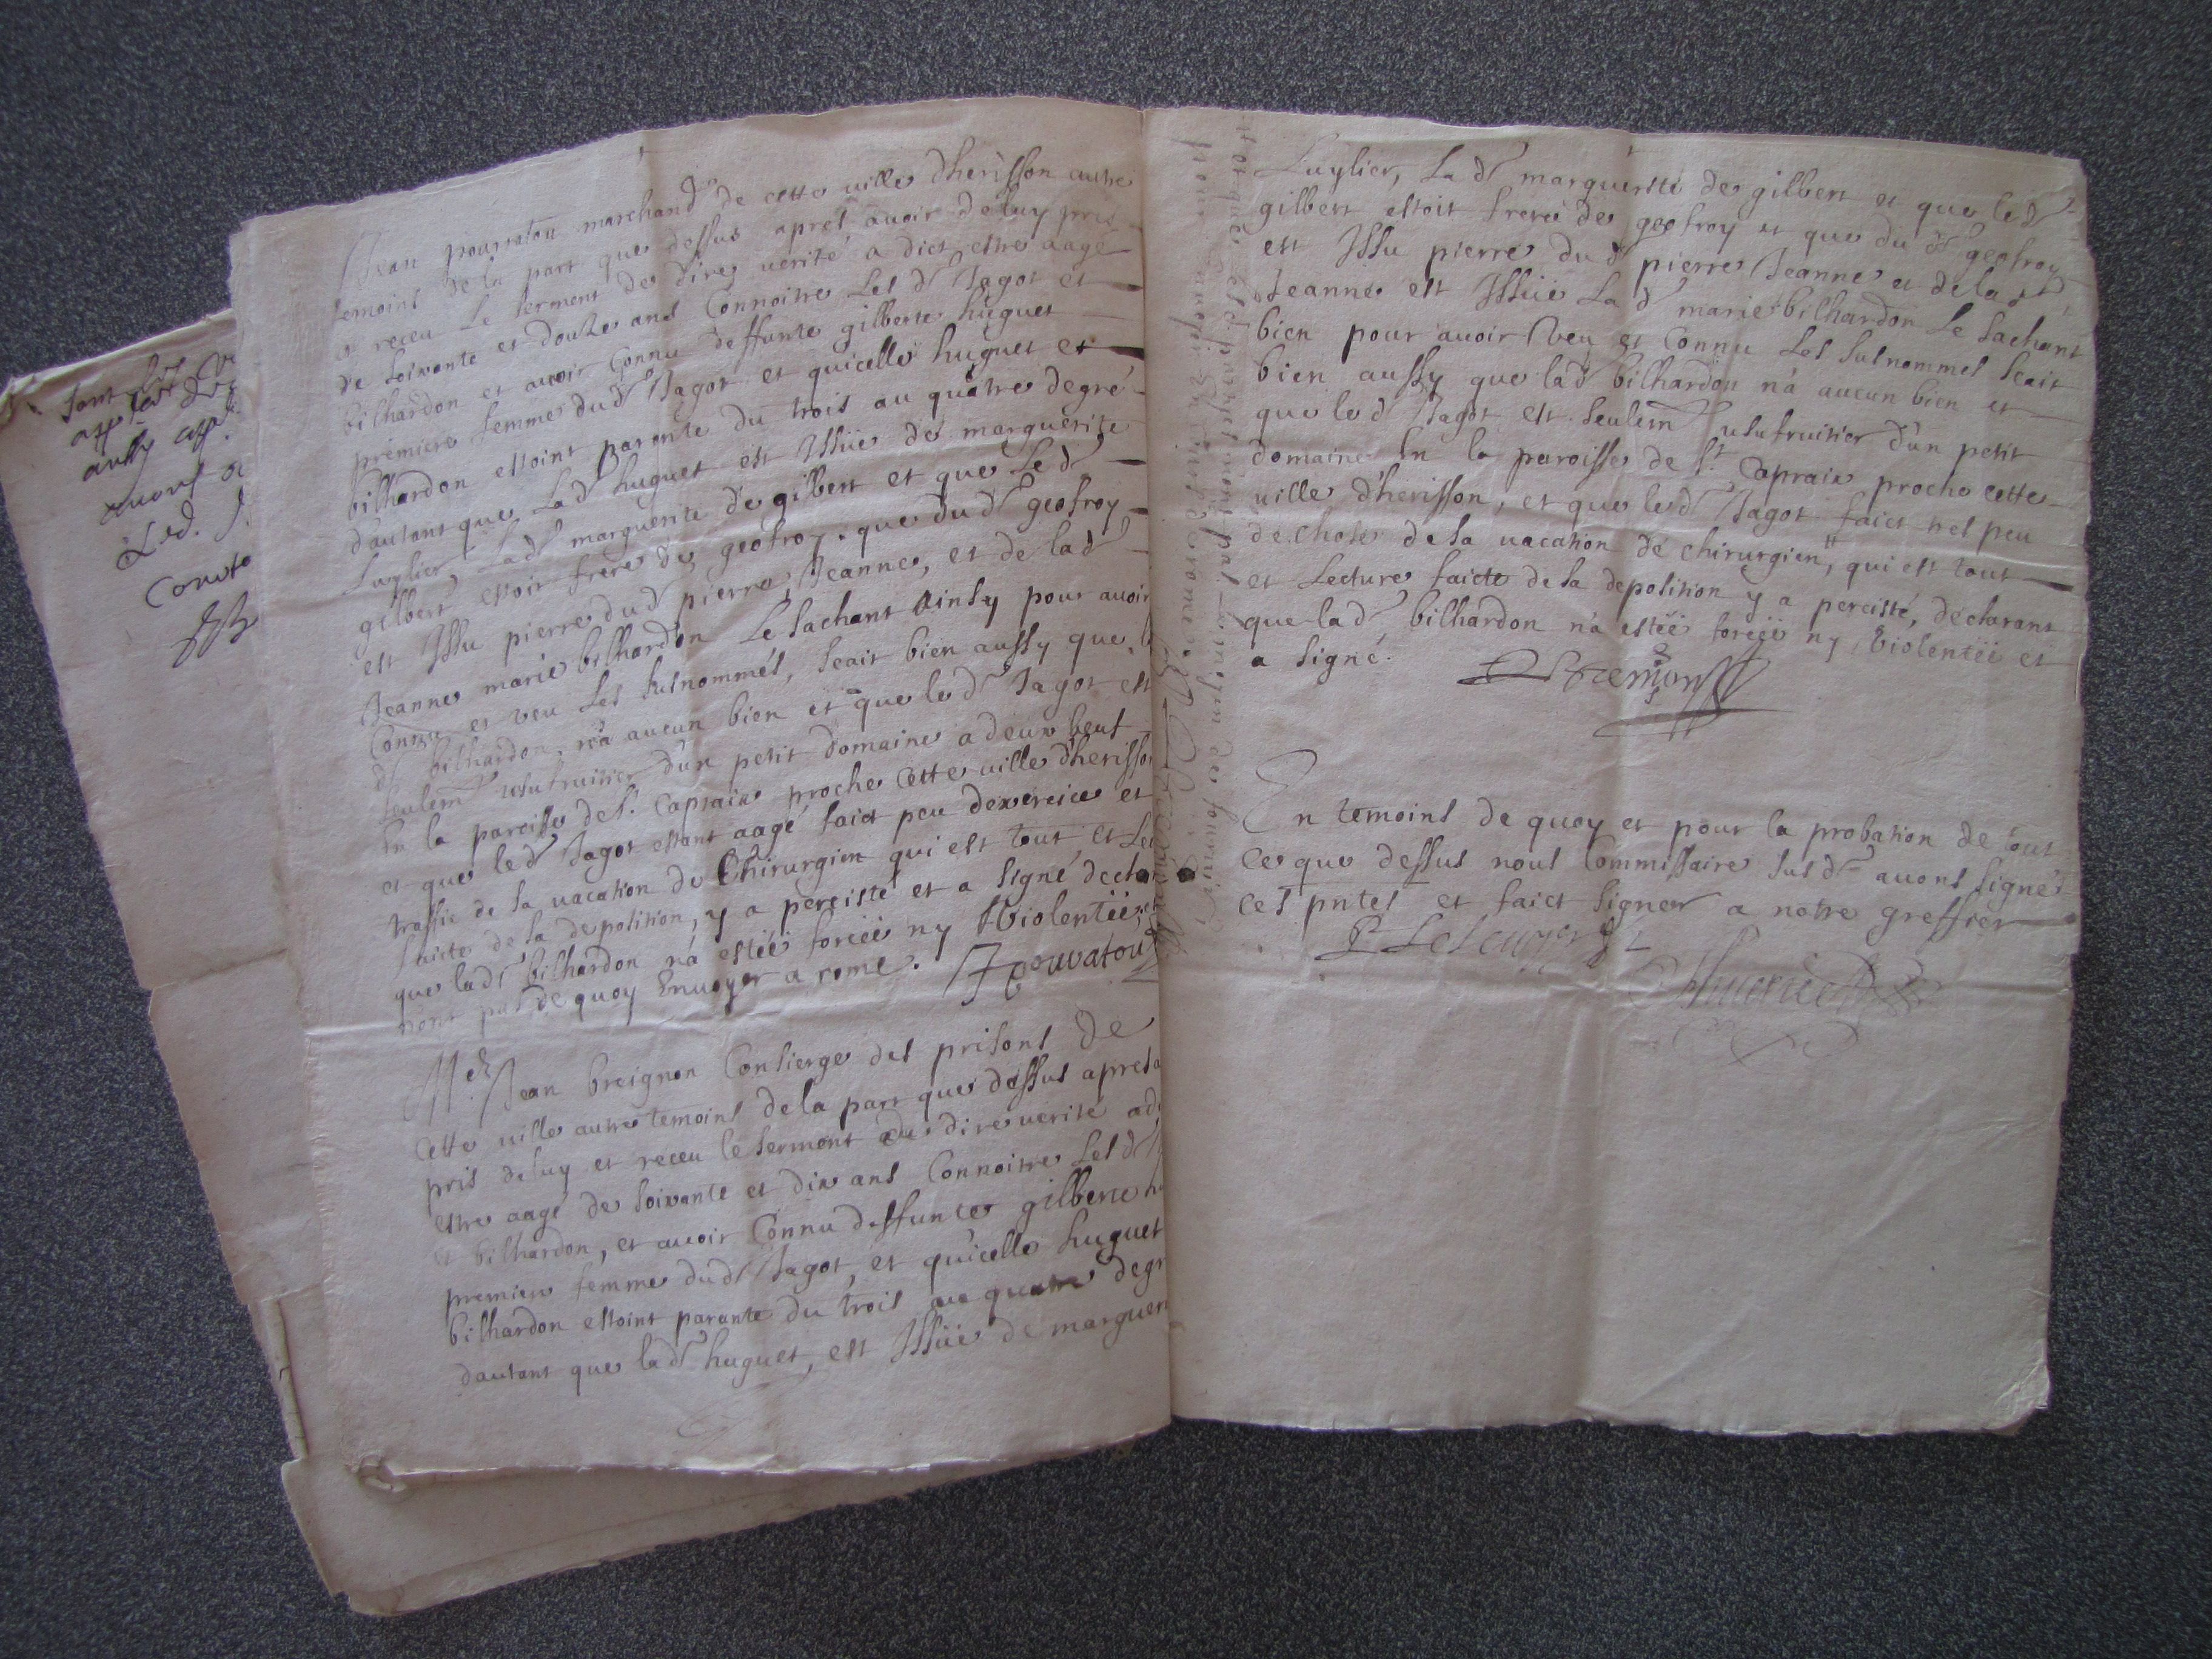 sont
aussy
avons
Led.
Jean pourratou marchand de cette ville dherisson autre
temoins de la part que dessus apres avoir de luy pris
et receu Le serment de dire verité a dict estre aagé
de soixante et douze ans Connoitre Les d Jagot et
bilhardon et avoir Connu deffunte gilberte huguet
premiere femme dud Jagot et quicelle huguet et
bilhardon estoint parente du trois au quatre degré
dautant que Lad huguet est Issüe de marguerite
Luylier, Lad marguerite de gilbert et que Led
gilbert estoit frere de geofroy. que dud geofroy
est Issu pierre dud pierre, Jeanne, et de lad
Jeanne marie bilhardon Le sachant ainsy pour avoir
Connu et veu Les susnommés, scait bien aussy que la
d bilhardon, n'a aucun bien et que led Jagot est
seulemt usufruitier d'un petit domaine a deux beuf
En la paroisse de St. Caprais proche Cette ville dherisson
et que led Jagot estant aagé faict peu dexercice et
traffic de sa vacation de Chirurgien qui est tout et Lec
faicte de sa deposition, y a percisté et a signé decla
que lad bilhardon n'a estéé forcéé ny Violentéé
nont pas de quoy Envoyer a rome. J pouvatou
Me Jean breignon Consierge des prisons de
Cette ville autre temoins de la part que dessus apres a
pris de luy et receu le serment de dire verité a d
estre aagé de soixante et dix ans Connoitre Les d
et bilhardon, et avoir Connu deffunte gilberte hu
premiere femme dud Jagot, et quicelle huguet
bilhardon estoint parante du trois au quatre degr
dautant que lad huguet, est Issüe de marguer
Luylier, La d marguerite de gilbert et que le d
gilbert estoit frere de geofroy et que du d geofroy
est Issu pierre du d pierre Jeanne et de lad
Jeanne est Issüe La d marie bilhardon Le sachant
bien pour avoir Veu et Connu Les susnommes scait
bien aussy que lad bilhardon n'a aucun bien et
que le d Jagot est seulemt usufruitier d'un petit
domaine En la paroisse de St. Caprais proche cette
ville d'herisson, et que led Jagot faict tres peu
de chose de sa vacation de chirurgien, qui est tout
et Lecture faicte de sa deposition y a percisté, declarant
que lad bilhardon n'a estéé forcéé ny Violentéé et
a signé.
En temoins de quoy et pour la probation de tout
ce que dessus nous Commissaire susd avons signé
ces pntes et faict signer a notre greffier